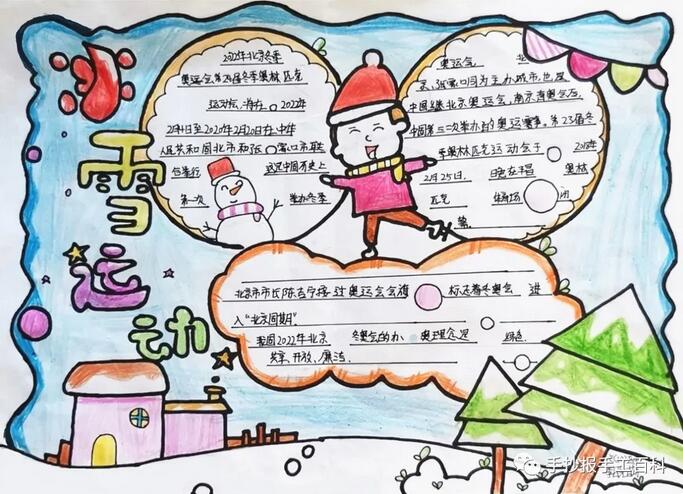 冰雪运动
2022年北京冬季
奥运会,第24届冬季奥林匹克
运动会,将在 2022年
2月4日至2022年2月20日在中华
人民共和国北京市和张家口市联
合举行 这是中国历史上
第一次 举办冬季
奥运会,北
京、张家口同为主办城市,也是
中国继北京奥运会,南京青奥会后,
中国第三次举办的奥运赛事。第23届冬
季奥林匹克运动会于 2018年
2月25日, 晚在平昌 奥林
匹克 体育场 闭
幕。
北京市市长陈吉宁接过奥运会会旗 标志着冬奥会 进
入“北京周期”。
我国2022年北京 冬奥会的办 奥理念是 绿色
共享、开放、廉洁、
手抄报手工百科